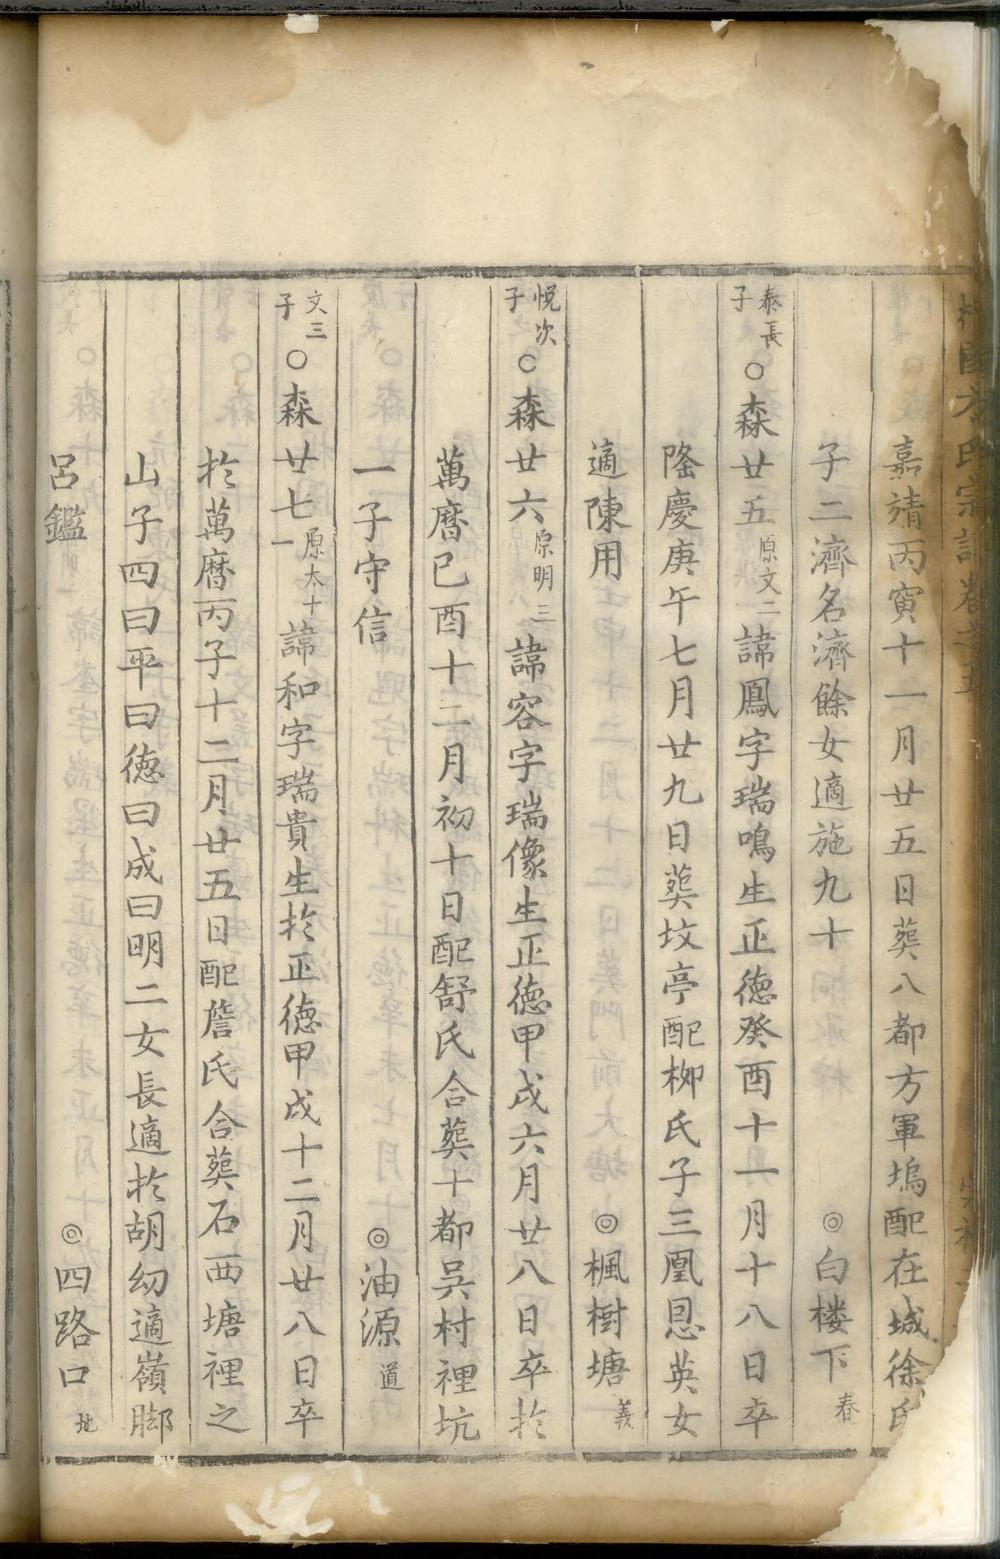 氏宗譜卷之五
嘉靖丙寅十一月廿五日葬八都方軍塢配在城徐氏
子二濟名濟餘女適施九十 ◎白楼下春
泰長子○森廿五原文二諱鳳字瑞鳴生正德癸酉十一月十八日卒
隆慶庚午七月廿九日葬坟亭配柳氏子三鳳恩英女
適陳用 ◎楓樹塘義
悦次子○森廿六原明三諱容字瑞像生正德甲戌六月廿八日卒扵
萬曆己酉十二月初十日配舒氏合葬十都吳村裡坑
一子守信 ◎油源道
文三子○森廿七原太十一諱和字瑞貴生扵正德甲戌十二月廿八日卒
扵萬曆丙子十二月廿五日配詹氏合葬石西塘裡之
山子四曰平曰德曰成曰明二女長適扵胡幼適嶺脚
呂鑑 ◎四路口北